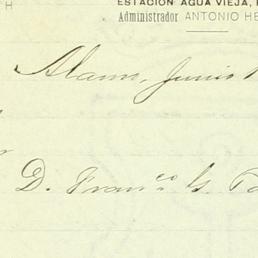 H ESTACIÓN AGUA VIEJA,
Administrador ANTONIO HE
Alamo, Junio 1
D. Franco G.